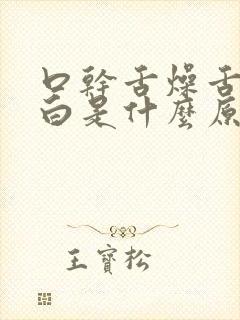 口幹舌燥舌
白是什麼原
王寶松